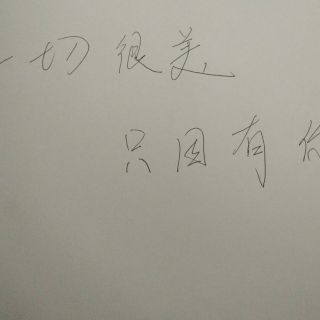 一切很美
只因有你